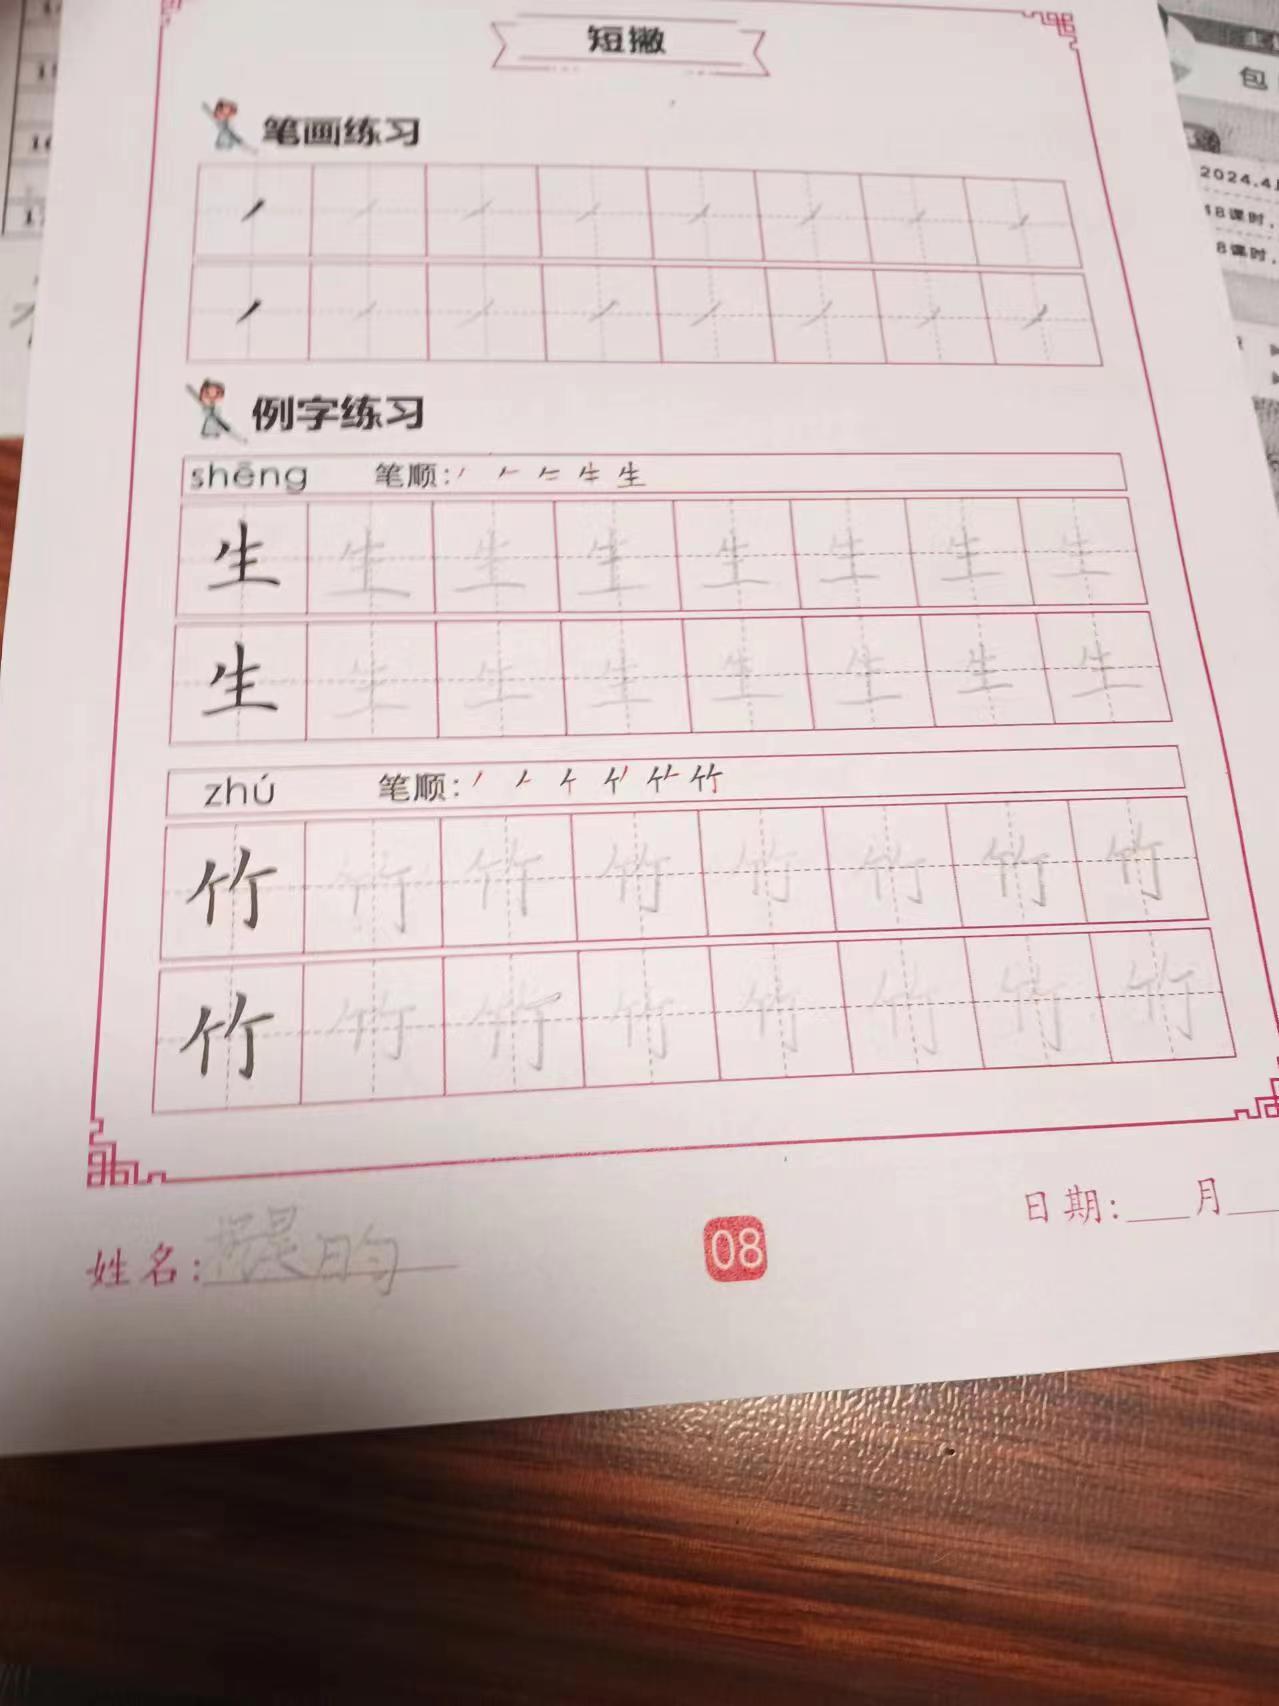 短撇
笔画练习
例字练习
shēng 笔顺: 生
生 生 生 生 生 生 生 生
生 生 生 生 生 生 生 生
zhú 笔顺: 竹
竹 竹 竹 竹 竹 竹 竹 竹
竹 竹 竹 竹 竹 竹 竹 竹
姓名: 晨昀
08
日期: 月
包
2024.4
18课时,
8课时,